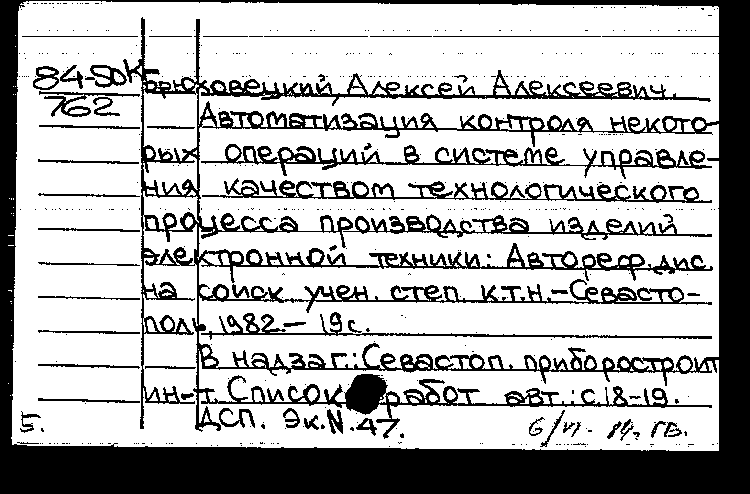 84-50К
762
Брюховецкий, Алексей Алексеевич.
Автоматизация контроля некото-
рых операций в системе управле-
ния качеством технологического
процесса производства изделий
электронной техники: Автореф. дис.
на соиск учен. степ. к.т.н.-Севасто-
поль, 1982.- 19с.
В надзаг.: Севастоп. приборостроит
ин-т. Список работ авт.: с.18-19.
ДСП. Эк.N.47.
5.